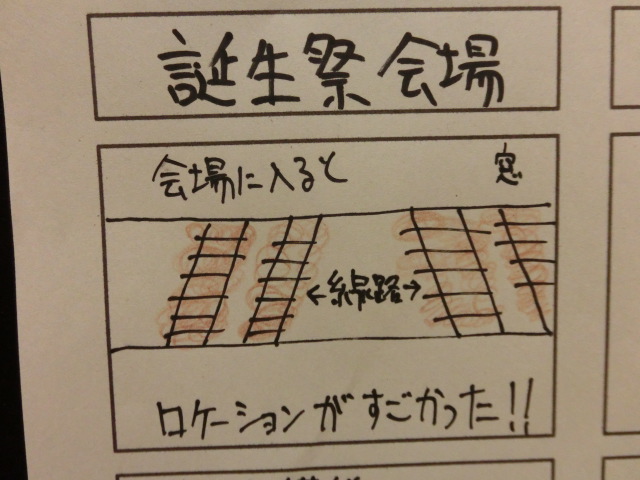 誕生祭会場
会場に入ると
窓
←線路→
ロケーションがすごかった!!